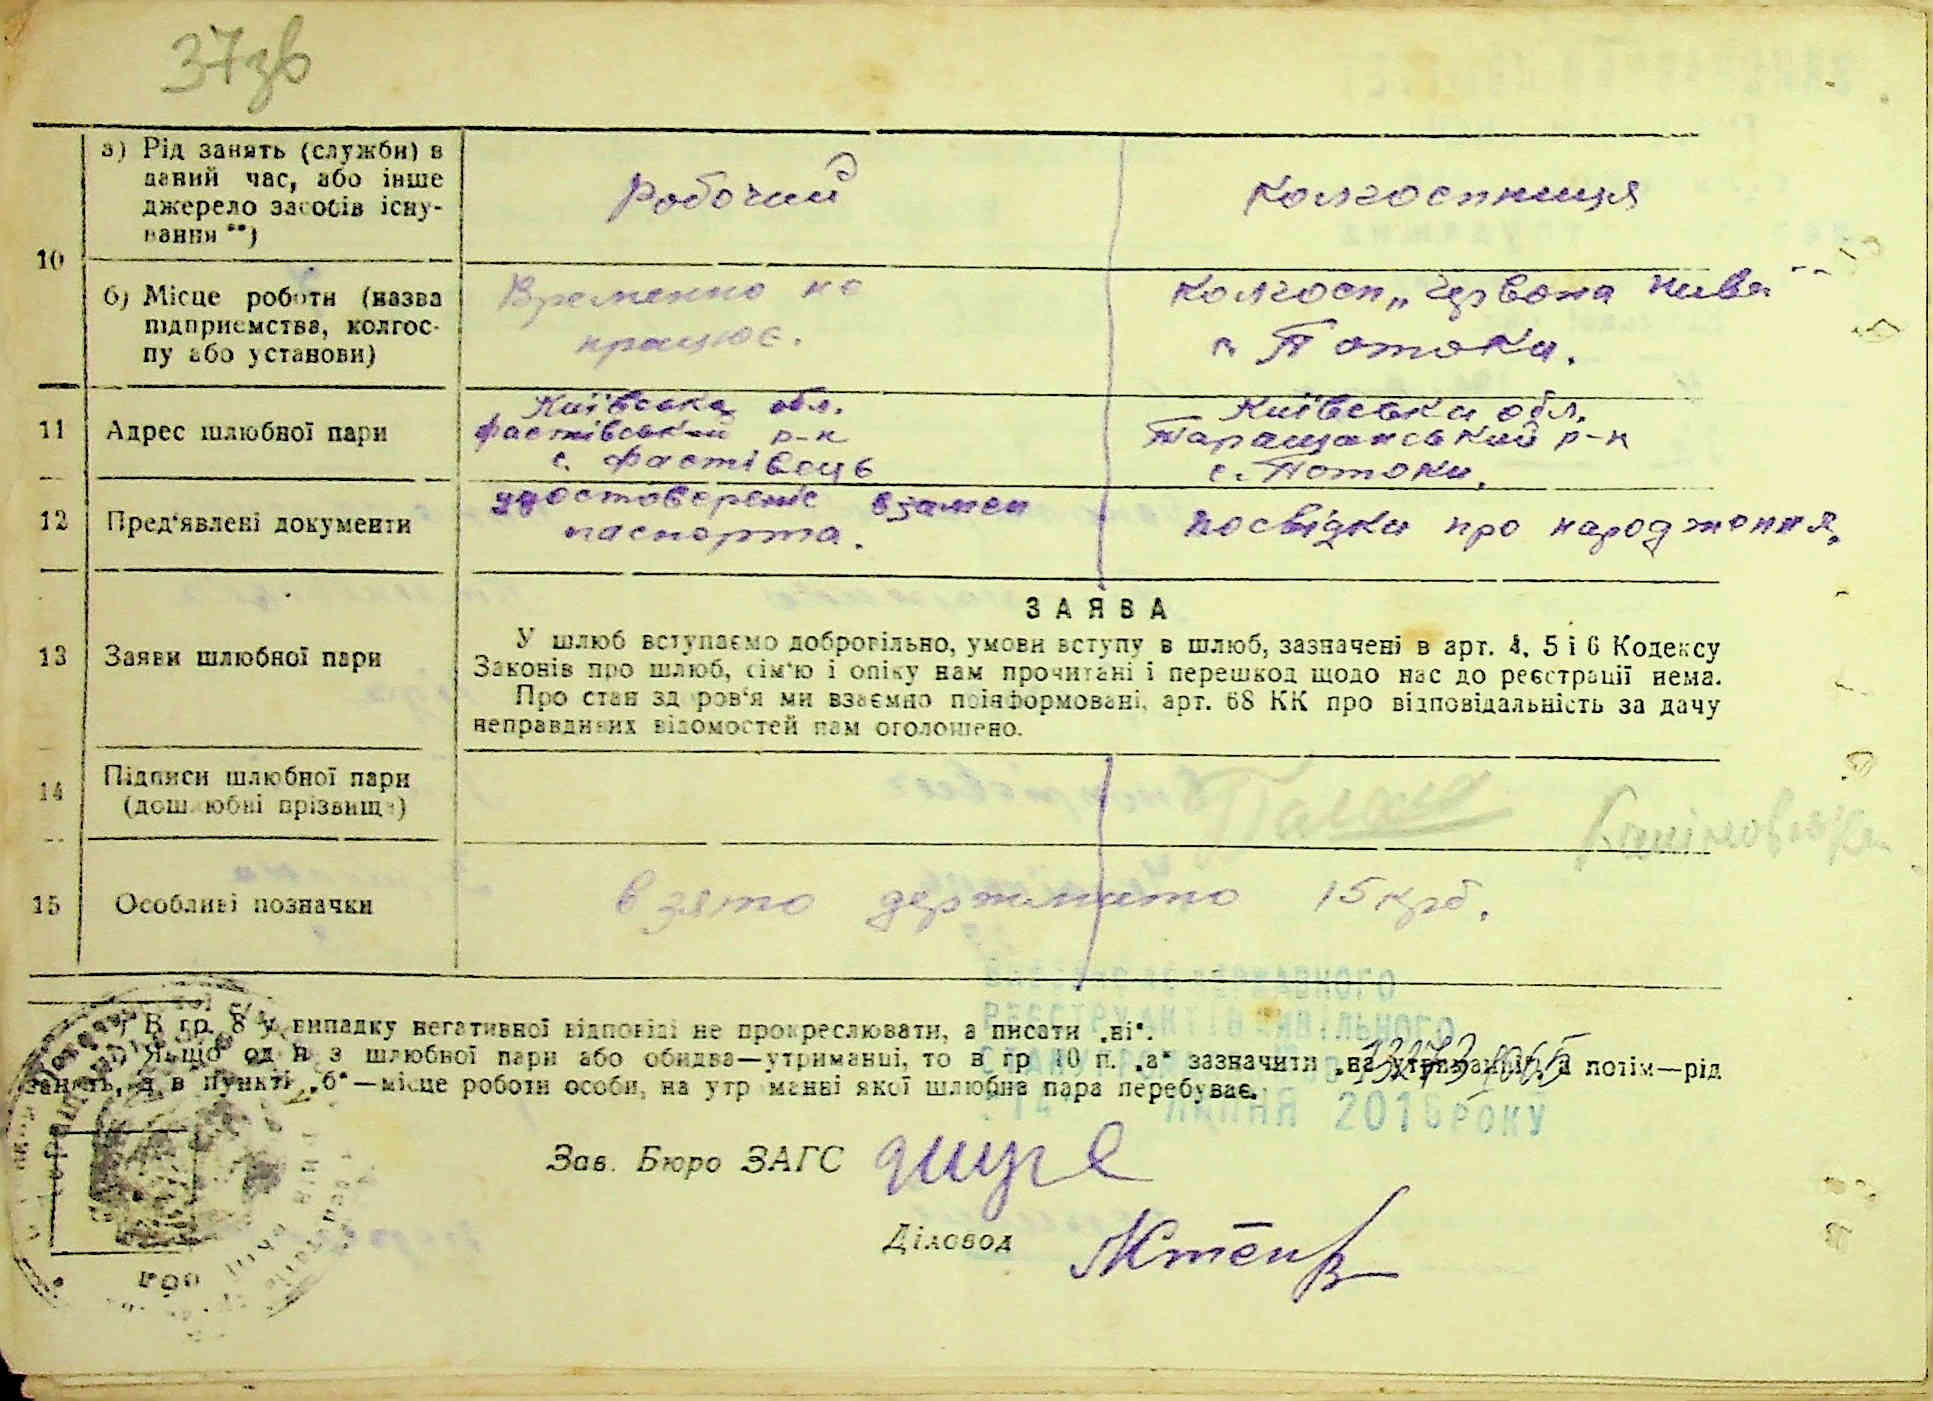 37зв
а) Рід занять (служби) в
даний час, або інше
джерело засобів існу-
вання **)
Робочий
Колгоспниця
10
б) Місце роботи (назва
підприємства, колгос-
пу або установи)
Временно не
працює.
Колгосп „Червона Нива"
с. Потоки.
11
Адрес шлюбної пари
Київська обл.
Фастівський р-н
с. Фастівець
Київська обл.
Таращанський р-н
с. Потоки.
12
Пред'явлені документи
удостоверение взамен
паспорта.
посвідки про народження.
13
Заяви шлюбної пари
ЗАЯВА
У шлюб вступаємо добровільно, умови вступу в шлюб, зазначені в арт. 4, 5 і 6 Кодексу
Законів про шлюб, сім'ю і опіку нам прочитані і перешкод щодо нас до реєстрації нема.
Про стан здоров'я ми взаємно поінформовані, арт. 68 КК про відповідальність за дачу
неправдивих відомостей нам оголошено.
14
Підписи шлюбної пари
(дошлюбні прізвища)
15
Особливі позначки
взято держмито 15 крб.
*) В гр. 8 у випадку негативної відповіді не прокреслювати, а писати „ні".
**) Якщо один з шлюбної пари або обидва—утриманці, то в гр 10 п. „а" зазначити „на утриманні", а потім—рід
занять, а в пункті „б"—місце роботи особи, на утриманні якої шлюбна пара перебуває.
ДЕРЖАВНОГО
РЕЄСТРУ АКТІВ ЦИВІЛЬНОГО
14 ЛИПНЯ 2016 РОКУ
Зав. Бюро ЗАГС
Діловод